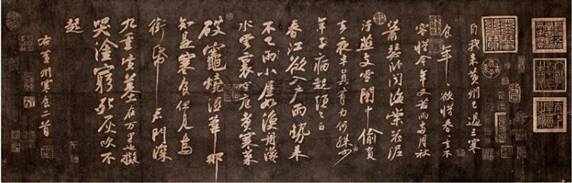 自我來黃州已過三寒
食年〻欲惜春春去不
容惜今年又苦雨兩月秋
蕭瑟臥聞海棠花泥
汙燕支雪闇中偷負
去夜半真有力何殊少
年子病起須已白
春江欲入戶雨勢來
不已雨小屋如漁舟濛〻
水雲裏空庖煮寒菜
破竈燒濕葦那
知是寒食但見烏
銜帋 君門深
九重墳墓在万里也擬
哭塗窮死灰吹不
起
右黃州寒食二首